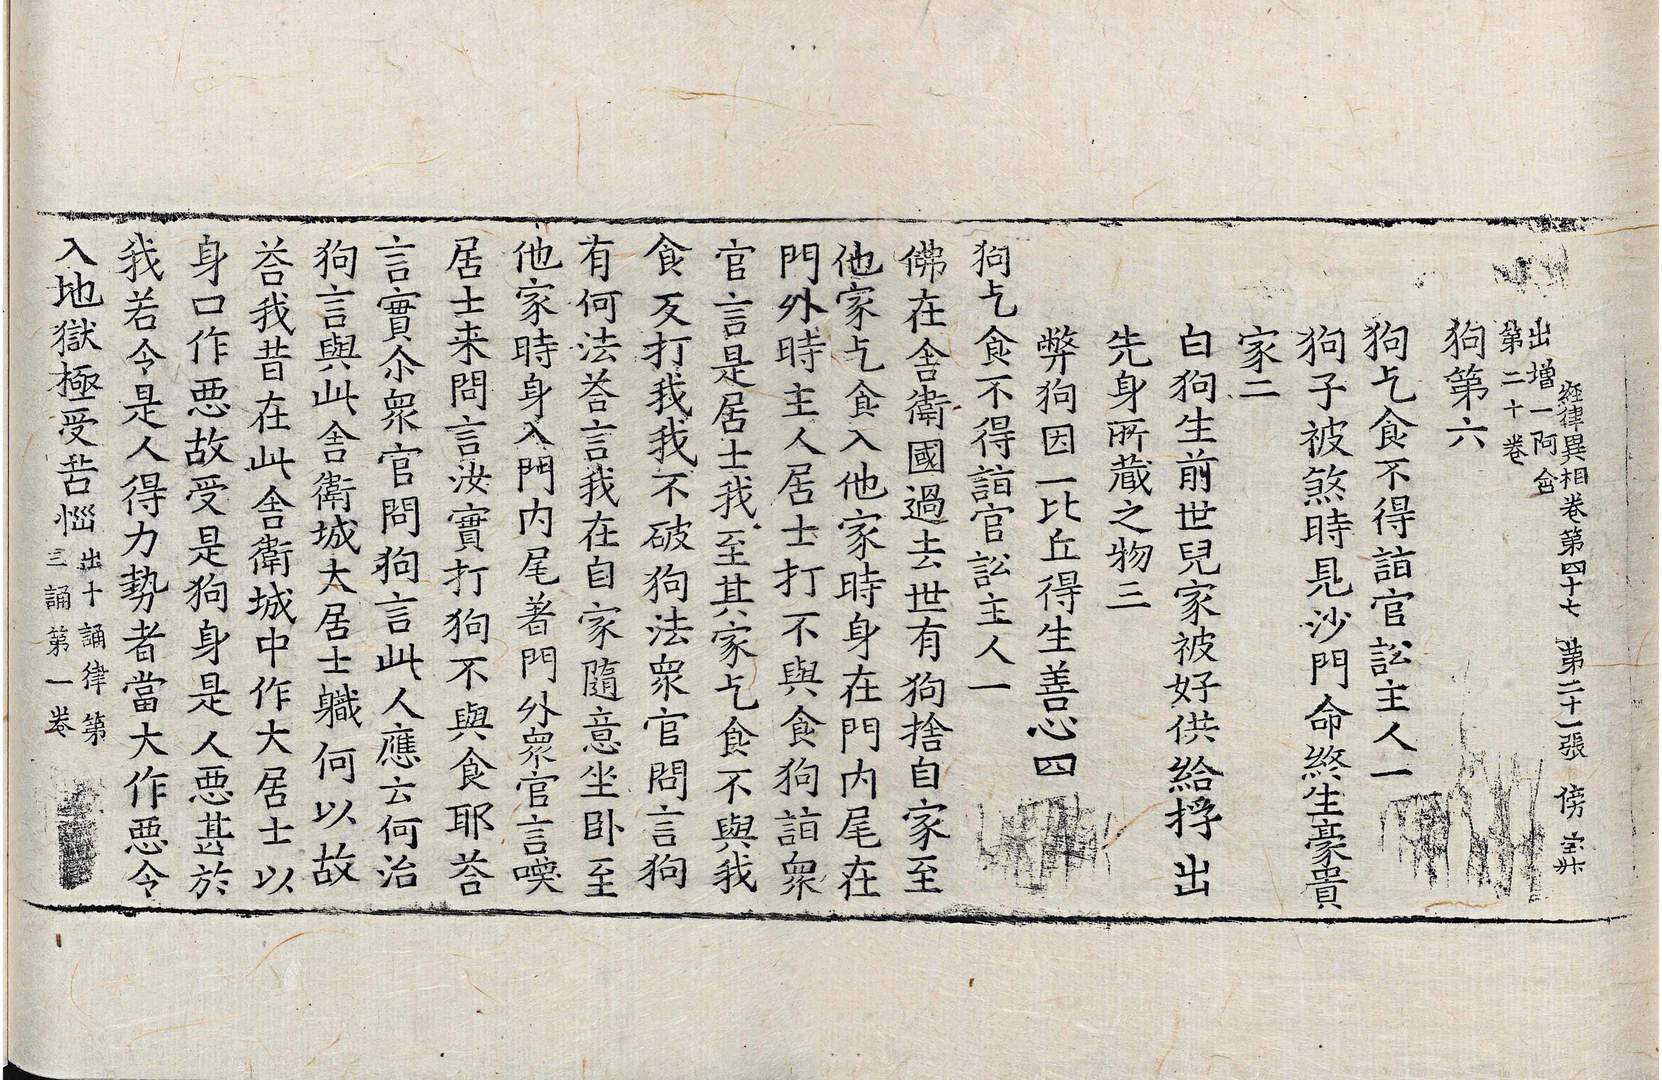 經律異相卷第四十七 第二十一張 傍 㝎卄
出增一阿含
第二十卷
狗第六
狗乞食不得詣官訟主人一
狗子被煞時見沙門命終生豪貴
家二
白狗生前世兒家被好供給捊出
先身所蔵之物三
弊狗因一比丘得生善心四
狗乞食不得詣官訟主人一
佛在舍衛國過去世有狗捨自家至
他家乞食入他家時身在門内尾在
門外時主人居士打不與食狗詣衆
官言是居士我至其家乞食不與我
食反打我我不破狗法衆官問言狗
有何法荅言我在自家隨意坐卧至
他家時身入門内尾著門外衆官言喚
居士来問言汝實打狗不與食耶荅
言實尒衆官問狗言此人應云何治
狗言與此舍衛城大居士職何以故
荅我昔在此舍衛城中作大居士以
身口作悪故受是狗身是人悪甚於
我若令是人得力勢者當大作悪令
入地獄極受苦惱
出十誦律第
三誦第一卷